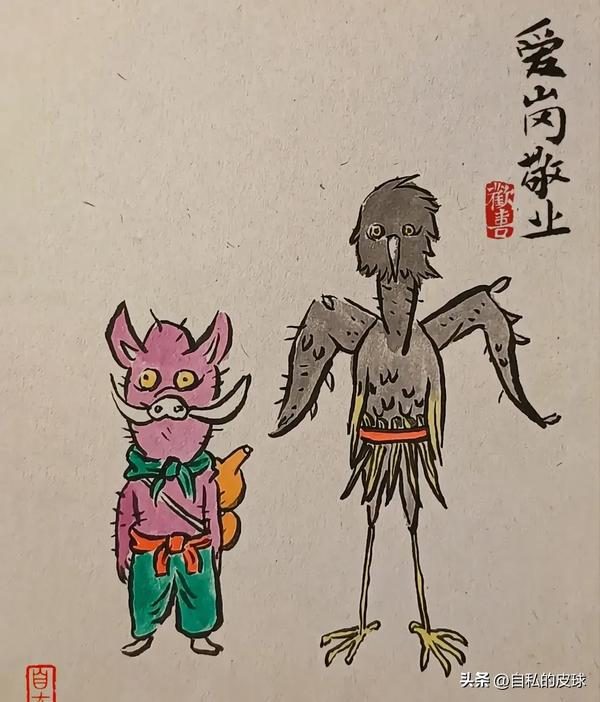 爱岗敬业
歡喜
自
头条 @自私的皮球